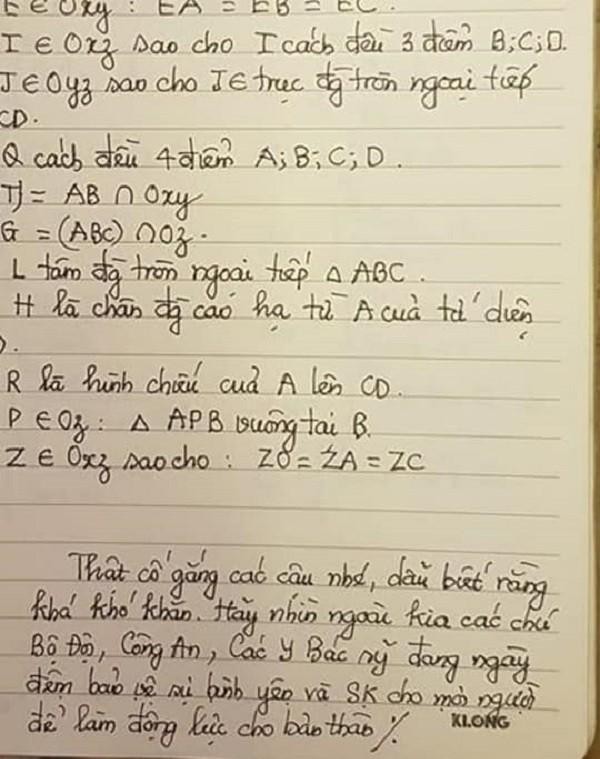 E ∈ Oxy : EA = EB = EC.
I ∈ Oxz sao cho I cách đều 3 điểm B;C;D.
J ∈ Oyz sao cho J ∈ trục đg tròn ngoại tiếp
CD.
Q cách đều 4 điểm A; B; C; D.
= AB ∩ Oxy
G = (ABC) ∩ Oz.
L tâm đg tròn ngoại tiếp Δ ABC.
H là chân đg cao hạ từ A của tứ diện
).
R là hình chiếu của A lên CD.
P ∈ Oz : Δ APB vuông tại B.
Z ∈ Oxz sao cho : ZO = ZA = ZC
Thật cố gắng các cậu nhé, dẫu biết rằng
khá khó khăn. Hãy nhìn ngoài kia các chú
Bộ Đội, Công An, Các Y Bác sỹ đang ngày
đêm bảo vệ sự bình yên và SK cho mọi người
để làm động lực cho bản thân ./.
KLONG